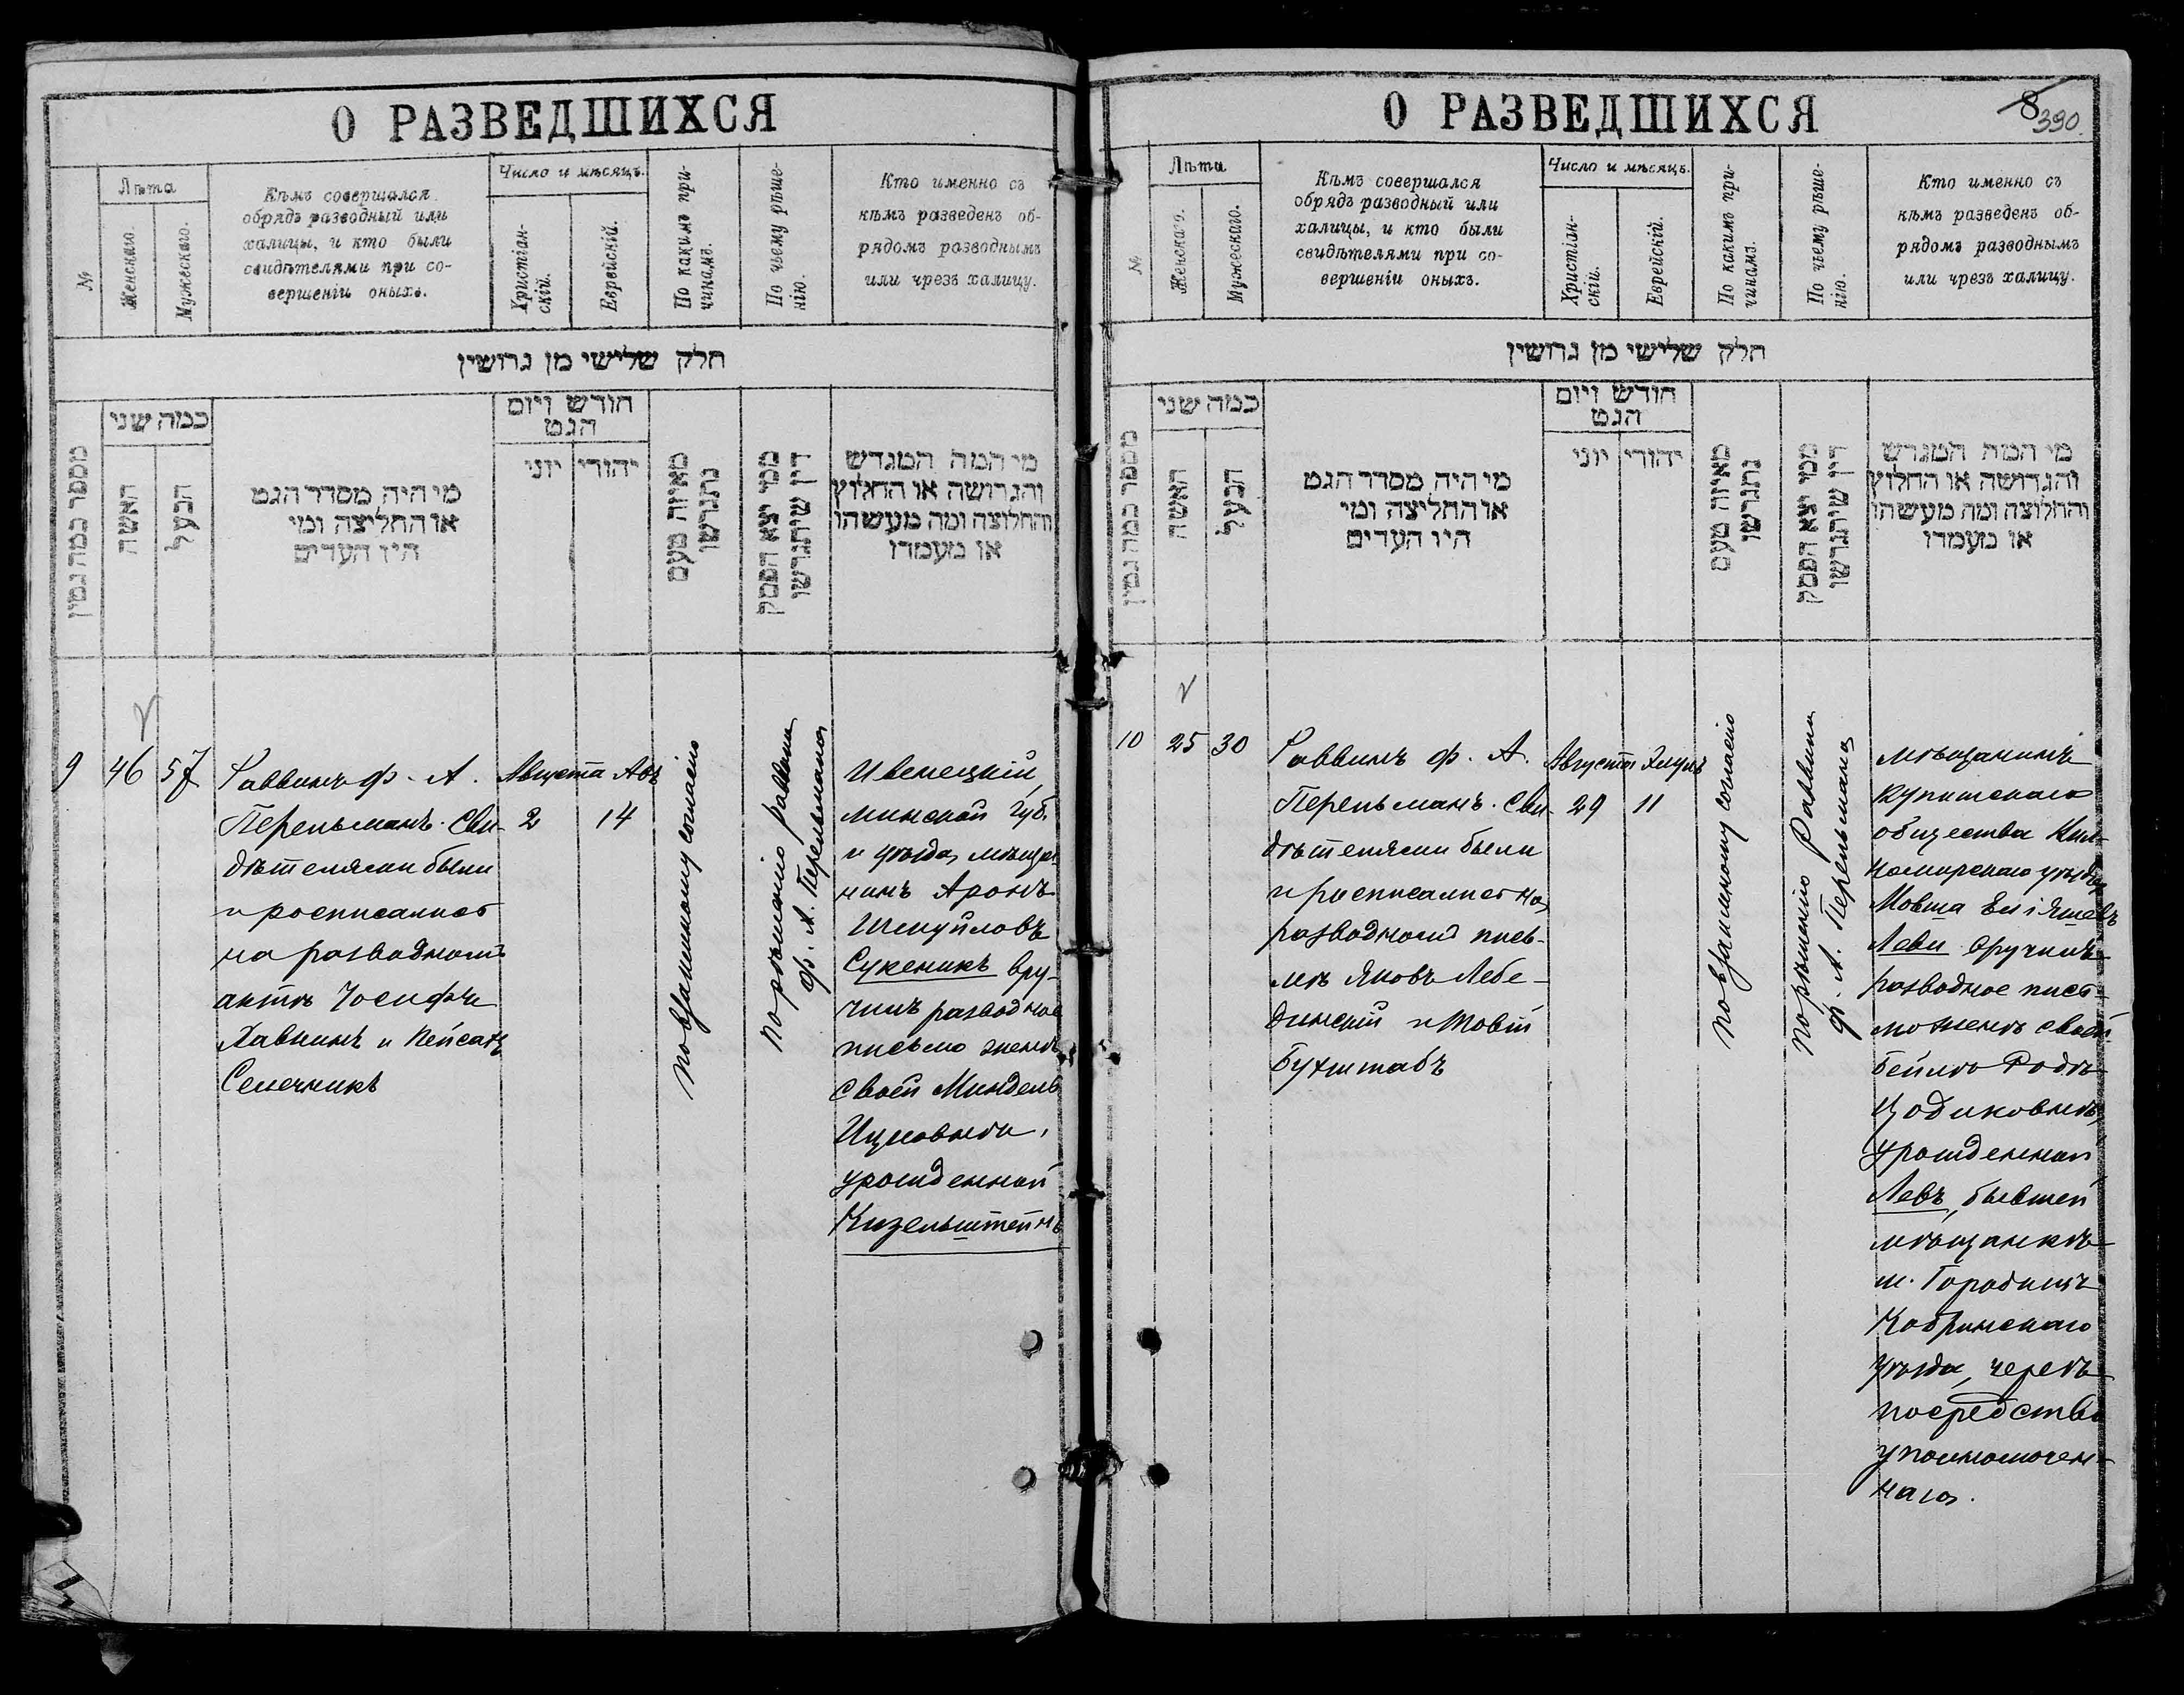 О РАЗВЕДШИХСЯ
№
Лѣта
Женскаго.
Мужескаго.
Кѣмъ совершался
обрядъ разводный или
халицы, и кто были
свидѣтелями при со-
вершеніи оныхъ.
Число и мѣсяцъ.
Христіан-
скій.
Еврейскій.
По какимъ при-
чинамъ.
По чьему рѣше-
нію.
Кто именно съ
кѣмъ разведенъ об-
рядомъ разводнымъ
или чрезъ халицу.
חלק שלישי מן גרושין
מספר כמה גמין
כמה שני
האשה
הבעל
מי היה מסדר הגט
או החליצה ומי
היו העדים
חודש ויום
הגט
יוני
יהודי
מאיזה טעם
נתגרשו
ממי יצא הפסק
דין שיתגרשו
מי המה המגרש
והגרושה או החלוץ
והחלוצה ומה מעשהו
או מעמדו
9
46
57
Раввинъ ф. А.
Перельманъ. Сви-
дѣтелями были
и росписались
на разводномъ
актѣ Іосифъ
Хавкинъ и Пейсахъ
Сенечникъ
Августа Авъ
2 14
по взаимному согласію
по рѣшенію раввина
ф. А. Перельмана
Ивенецкій,
Минской губ.
и уѣзда, мѣща-
нинъ Аронъ
Шмуйловъ
Сукеникъ вру-
чилъ разводное
письмо женѣ
своей Миндель
Ицковнѣ,
урожденной
Кизельштейнъ
О РАЗВЕДШИХСЯ
8
390.
№
Лѣта
Женскаго.
Мужескаго.
Кѣмъ совершался
обрядъ разводный или
халицы, и кто были
свидѣтелями при со-
вершеніи оныхъ.
Число и мѣсяцъ.
Христіан-
скій.
Еврейскій.
По какимъ при-
чинамъ.
По чьему рѣше-
нію.
Кто именно съ
кѣмъ разведенъ об-
рядомъ разводнымъ
или чрезъ халицу.
חלק שלישי מן גרושין
מספר כמה גמין
כמה שני
האשה
הבעל
מי היה מסדר הגט
או החליצה ומי
היו העדים
חודש ויום
הגט
יוני
יהודי
מאיזה טעם
נתגרשו
ממי יצא הפסק
דין שיתגרשו
מי המה המגרש
והגרושה או החלוץ
והחלוצה ומה מעשהו
או מעמדו
10
25
30
Раввинъ ф. А.
Перельманъ. Сви-
дѣтелями были
и росписались на
разводномъ пись-
мѣ Яковъ Лебе-
динскій и Товій
Бухштабъ
Августа Элулъ
29 11
по взаимному согласію
по рѣшенію Раввина
ф. А. Перельмана
мѣщанинъ
Купишскаго
общества Виль-
комирскаго уѣзда
Мовша Еліяшевъ
Леви вручилъ
разводное пись-
мо женѣ своей
Бейлѣ Родѣ
Цодиковнѣ,
урожденной
Левъ, бывшей
мѣщанкѣ
м. Городецъ
Кобринскаго
уѣзда, черезъ
посредство
уполномочен-
наго.